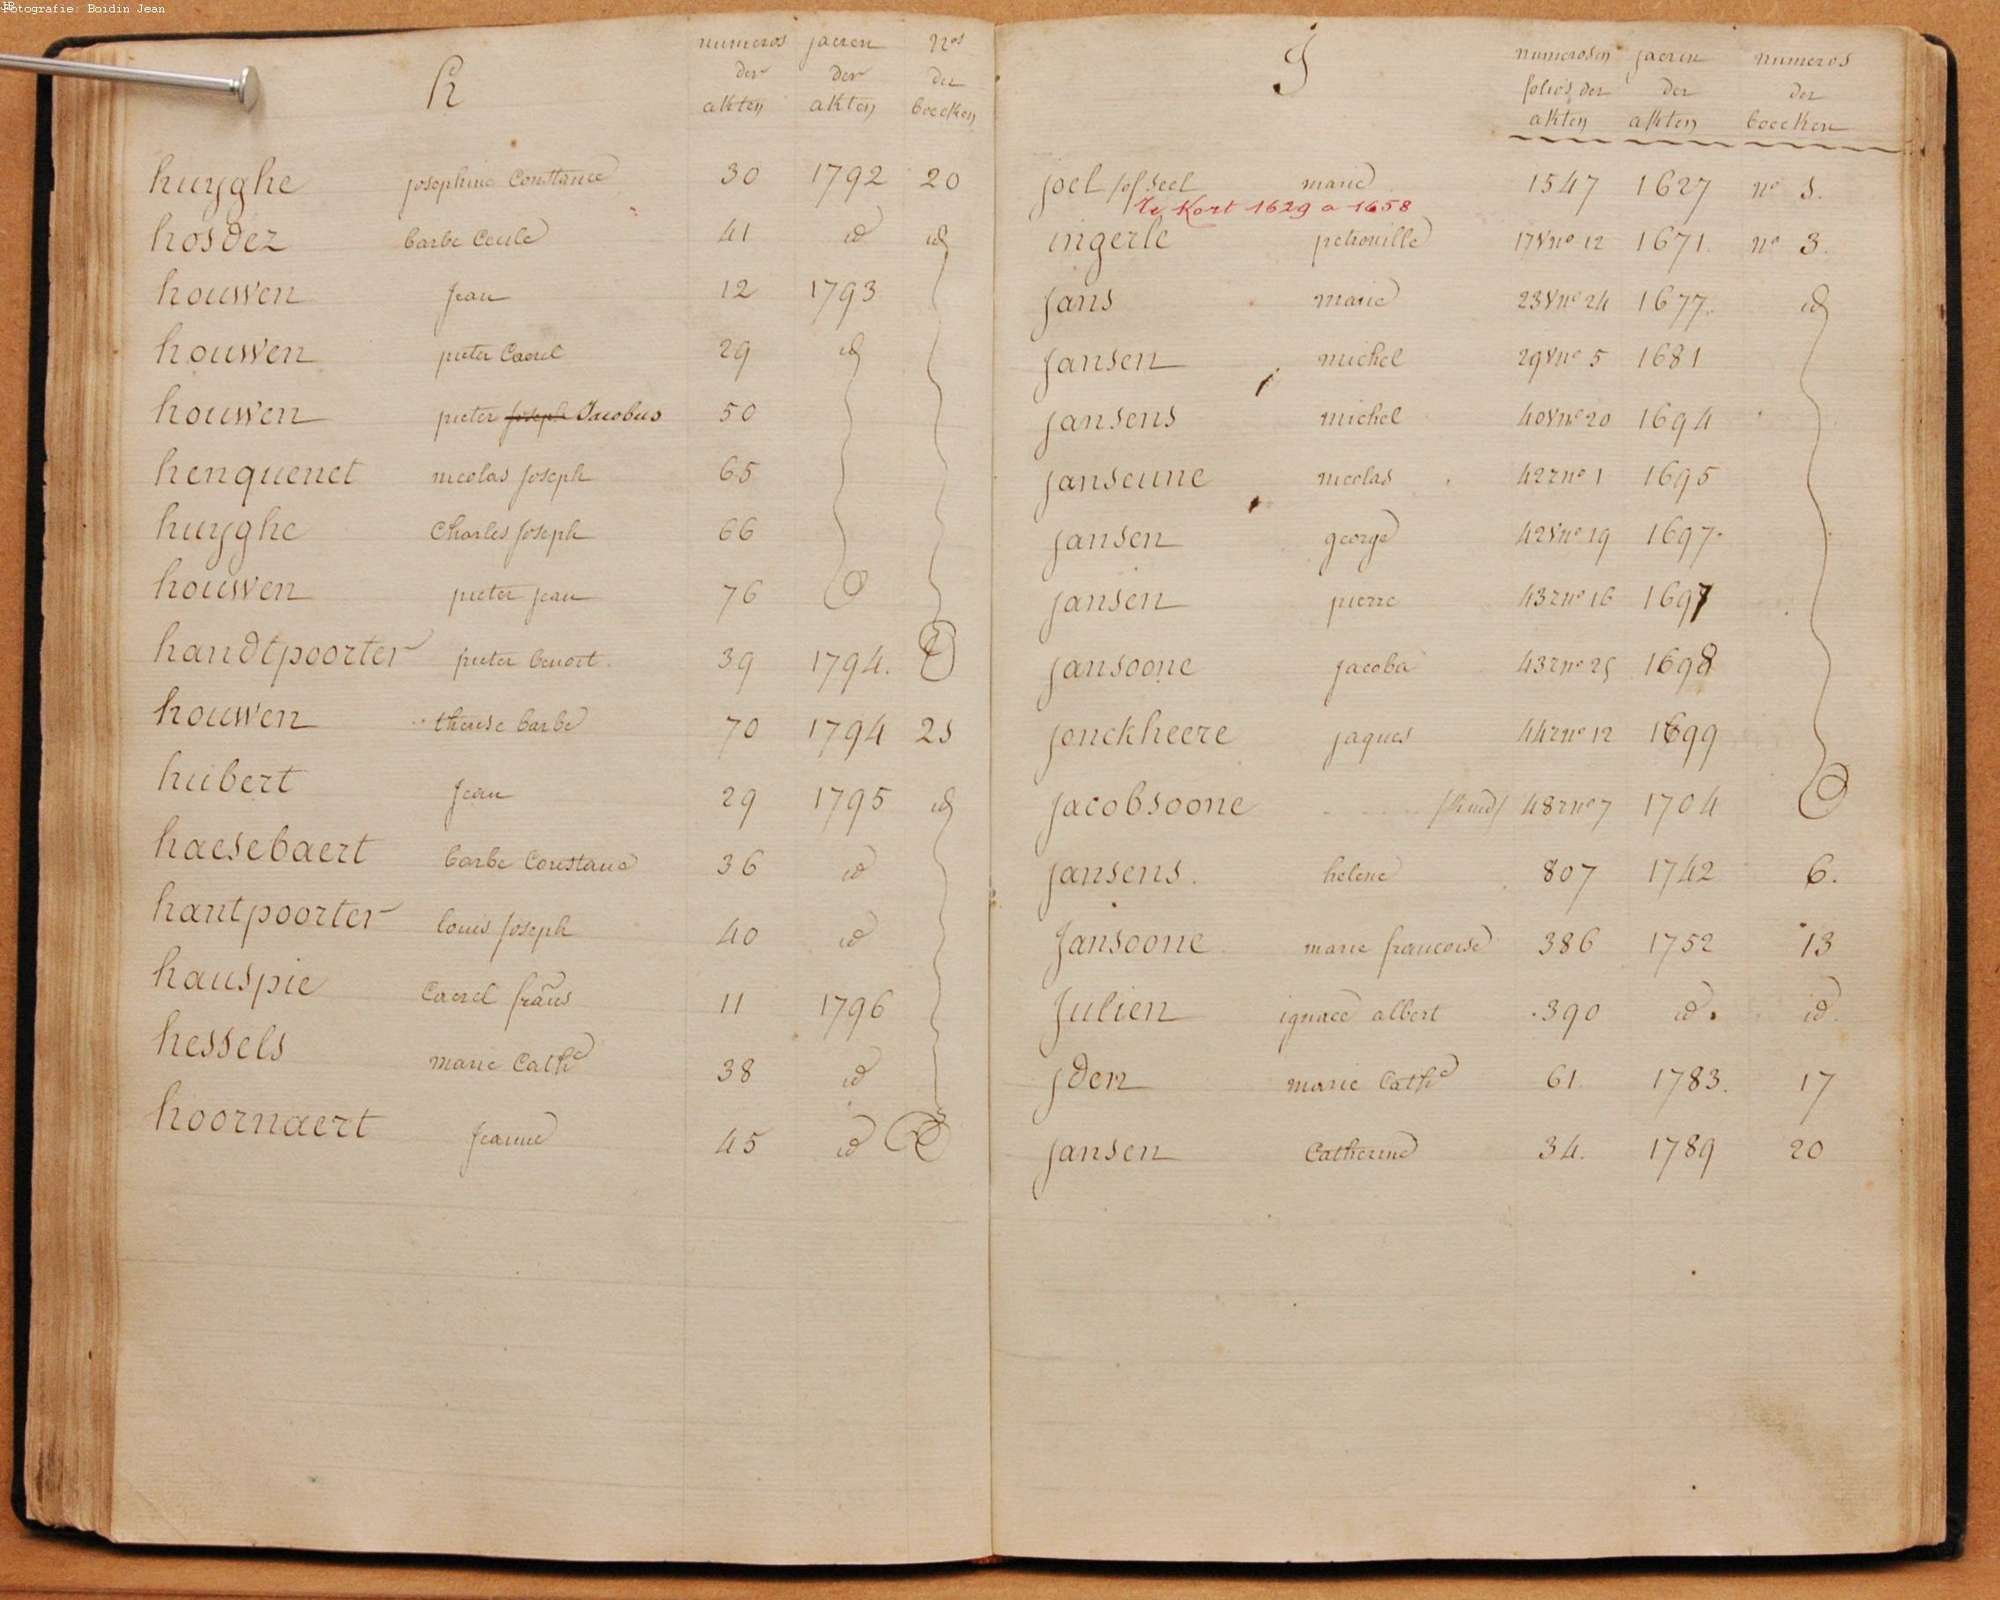 Fotografie: Boidin Jean
H
numeros der akten
jaeren der akten
Nos der boecken
huyghe josephine Constance 30 1792 20
hosdez barbe Cecile 41 id id
houwen Jean 12 1793
houwen pieter Caerel 29 id
houwen pieter Joseph Jacobus 50
henquenet nicolas Joseph 65
huyghe Charles Joseph 66
houwen pieter Jean 76
handtpoorter pieter benoit. 39 1794.
houwen therese barbe 70 1794 25
hubert Jean 29 1795 id
haesebaert barbe Constance 36 id
hantpoorter louis Joseph 40 id
hauspie Caerel frans 11 1796
hessels marie Cathe 38 id
hoornaert Jeanne 45 id
J
numeros en folios der akten
jaeren der akten
numeros der boecken
joel /of seel marie 1547 1627 no 1.
Kort 1629 a 1658
ingerle petronille 17Vno 12 1671. no 3.
jans marie 23Vno 24 1677. id
jansen michel 29Vno 5 1681
jansens michel 40Vno 20 1694
janseune nicolas 42rno 1 1695
jansen george 42Vno 19 1697.
jansen pierre 43rno 16 1697
jansoone jacoba 43rno 25 1698
jonckheere jaques 44rno 12 1699
jacobsoone /kind/ 48rno 7 1704
jansens. helene 807 1742 6.
Jansoone marie francoise 386 1752 13
Julien ignace albert 390 id. id.
jden marie Cathe 61 1783. 17
jansen Catherine 34. 1789 20